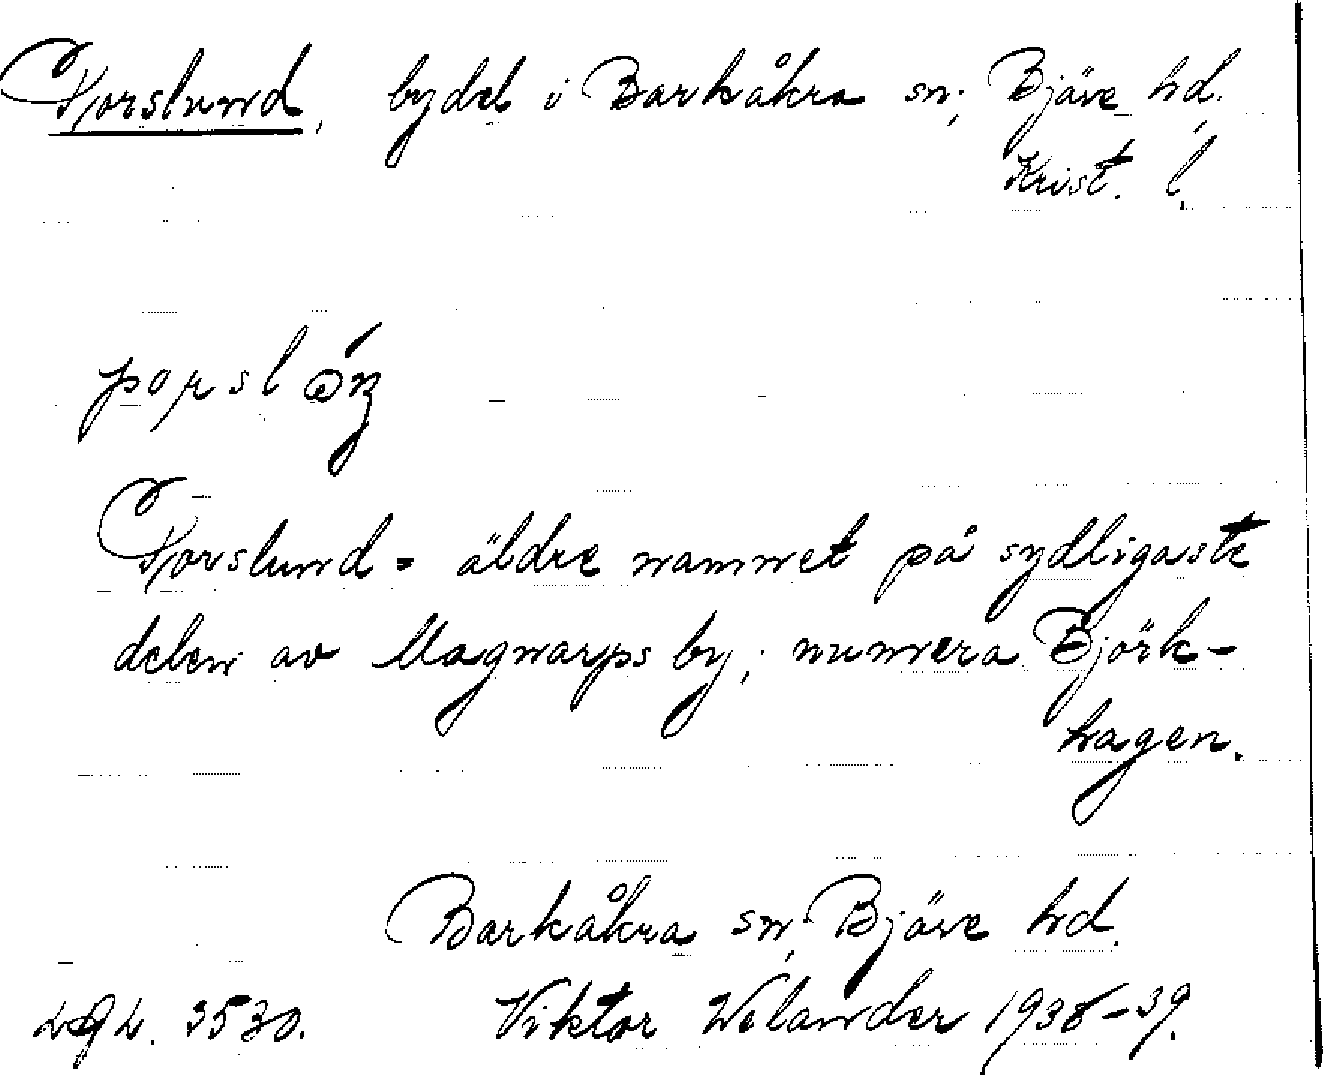 Porslund, bydel i Barkåkra sn; Bjäre hd.
Krist. l.
Porslund = äldre namnet på sydligaste
delen av Magnarps by; numera Björk-
hagen.
Barkåkra sn, Bjäre hd.
3530. Viktor Welander 1938-39.